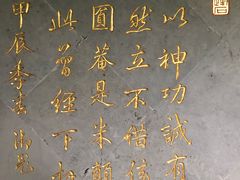 以神功誠有
然立不借
圓菴是米顛
此曾經下拜
甲辰季春御